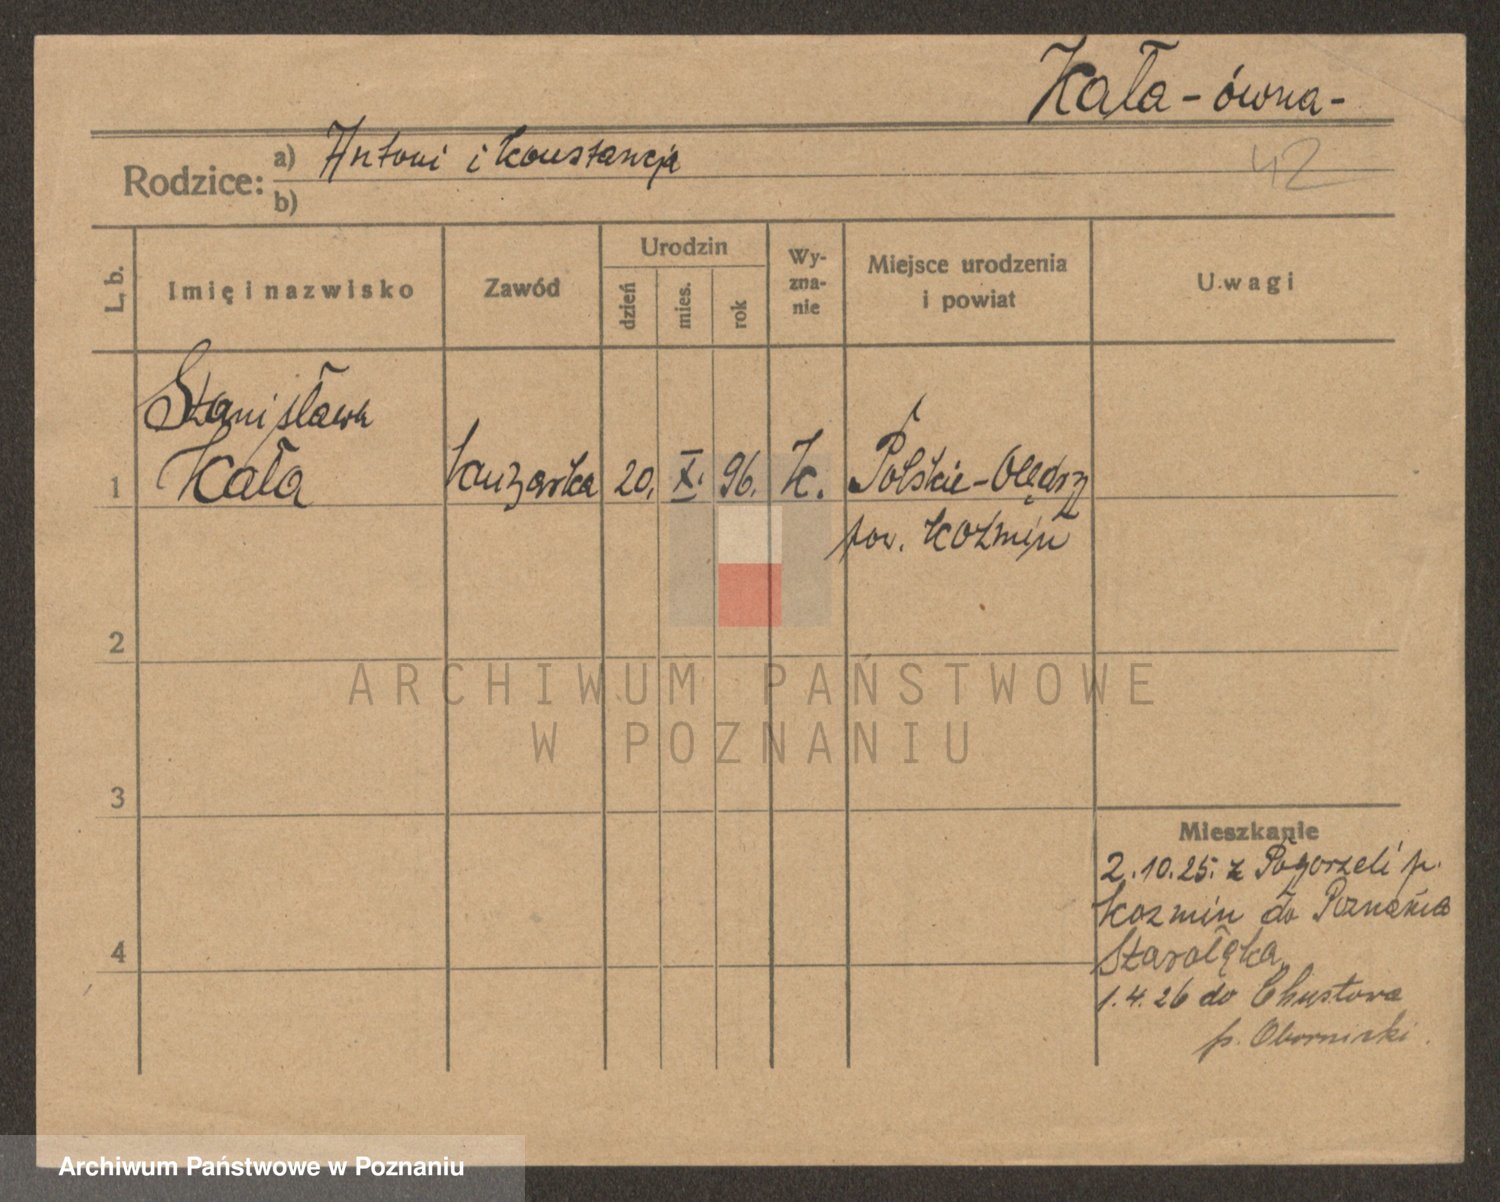 Kała - ówna -
42
Rodzice: a) Antoni i Konstancja
b)
L. b. Imię i nazwisko Zawód Urodzin dzień mies. rok Wyzna-nie Miejsce urodzenia i powiat U.wagi
Stanisława
1 Kała 20. X. 96. K. Polskie-Olędry
pow. Koźmin
2
ARCHIWUM PAŃSTWOWE
W POZNANIU
3
Mieszkanie
2.10.25. z Pogorzeli p.
Kozmin do Poznania
4 Starołęka
1.4.26 do
p. Obornicki.
Archiwum Państwowe w Poznaniu